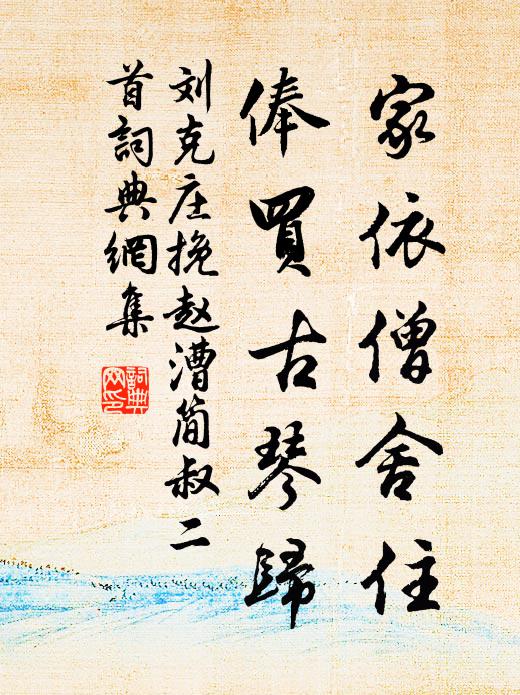 家依僧舍住
俸買古琴歸
刘克庄挽赵漕简叔二
首詞典網集
詞典網印